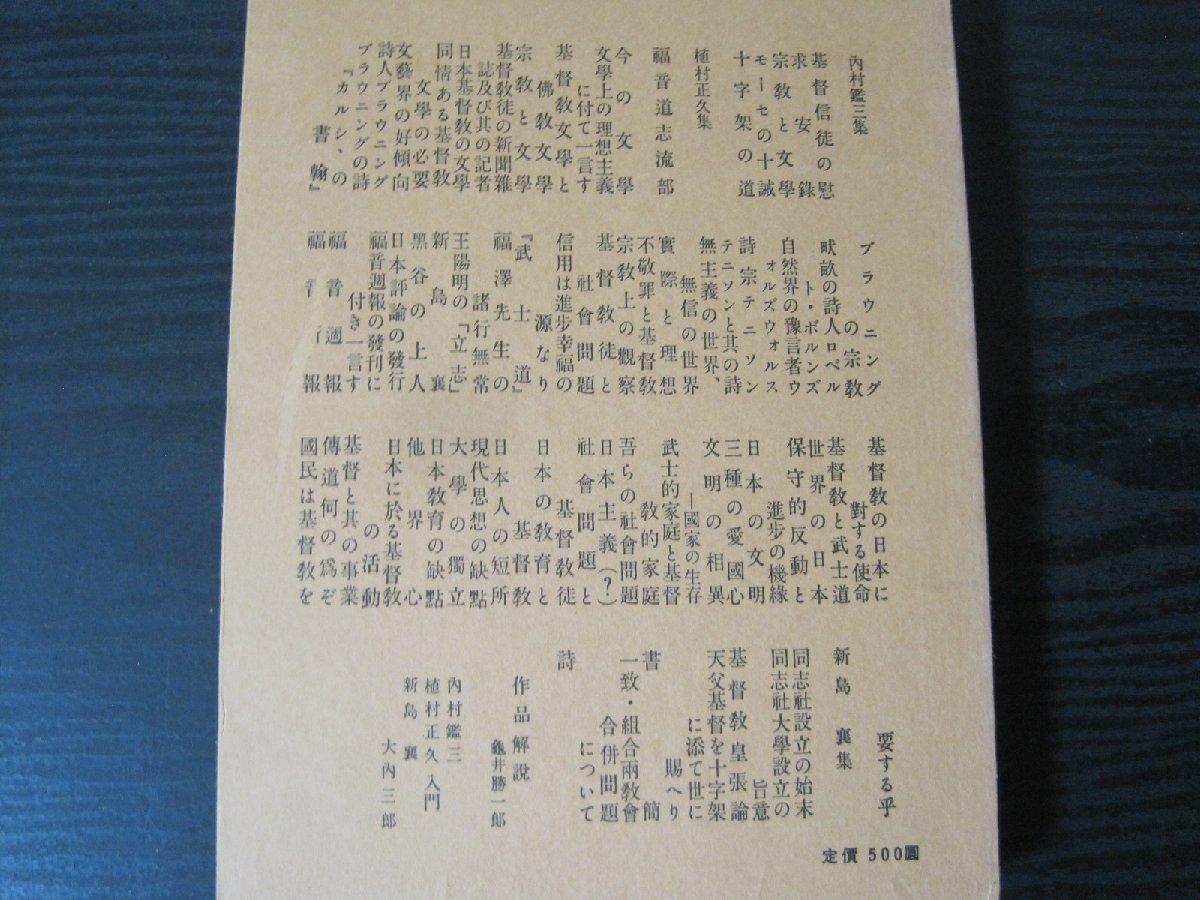 內村鑑三集
基督信徒の慰
求安錄
宗教と文學
モーセの十誡
十字架の道
植村正久集
福音道志流部
今の文學
文學上の理想主義
に付て一言す
基督教文學と
佛教文學
宗教と文學
基督教徒の新聞雜
誌及び其の記者
日本基督教の文學
同情ある基督教
文學の必要
文藝界の好傾向
詩人ブラウニング
ブラウニングの詩
『カルシ、の
書翰』
ブラウニング
の宗教
畎畝の詩人ロベル
ト・ボルンズ
自然界の豫言者ウ
オルズウォルス
詩宗テニソン
テニソンと其の詩
無主義の世界、
無信の世界
實際と理想
不敬罪と基督教
宗教上の觀察
基督教徒と
社會問題
信用は進步幸福の
源なり
『武士道』
福澤先生の
諸行無常
王陽明の「立志」
新島襄
黑谷の上人
日本評論の發行
福音週報の發刊に
付き一言す
福音週報
福音新報
基督教の日本に
對する使命
基督教と武士道
世界の日本
保守的反動と
進步の機緣
日本の文明
三種の愛國心
文明の相異
―國家の生存
武士的家庭と基督
教的家庭
吾らの社會問題
日本主義(？)
社會問題と
基督教徒
日本の教育と
基督教
日本人の短所
現代思想の缺點
大學の獨立
日本教育の缺點
他界心
日本に於る基督教
の活動
基督と其の事業
傳道何の爲ぞ
國民は基督教を
要する乎
新島襄集
同志社設立の始末
同志社大學設立の
旨意
基督教皇張論
天父基督を十字架
に添て世に
賜へり
書簡
一致・組合兩教會
合併問題
について
詩
作品解說
龜井勝一郎
內村鑑三
植村正久入門
新島襄
大內三郎
定價 500圓